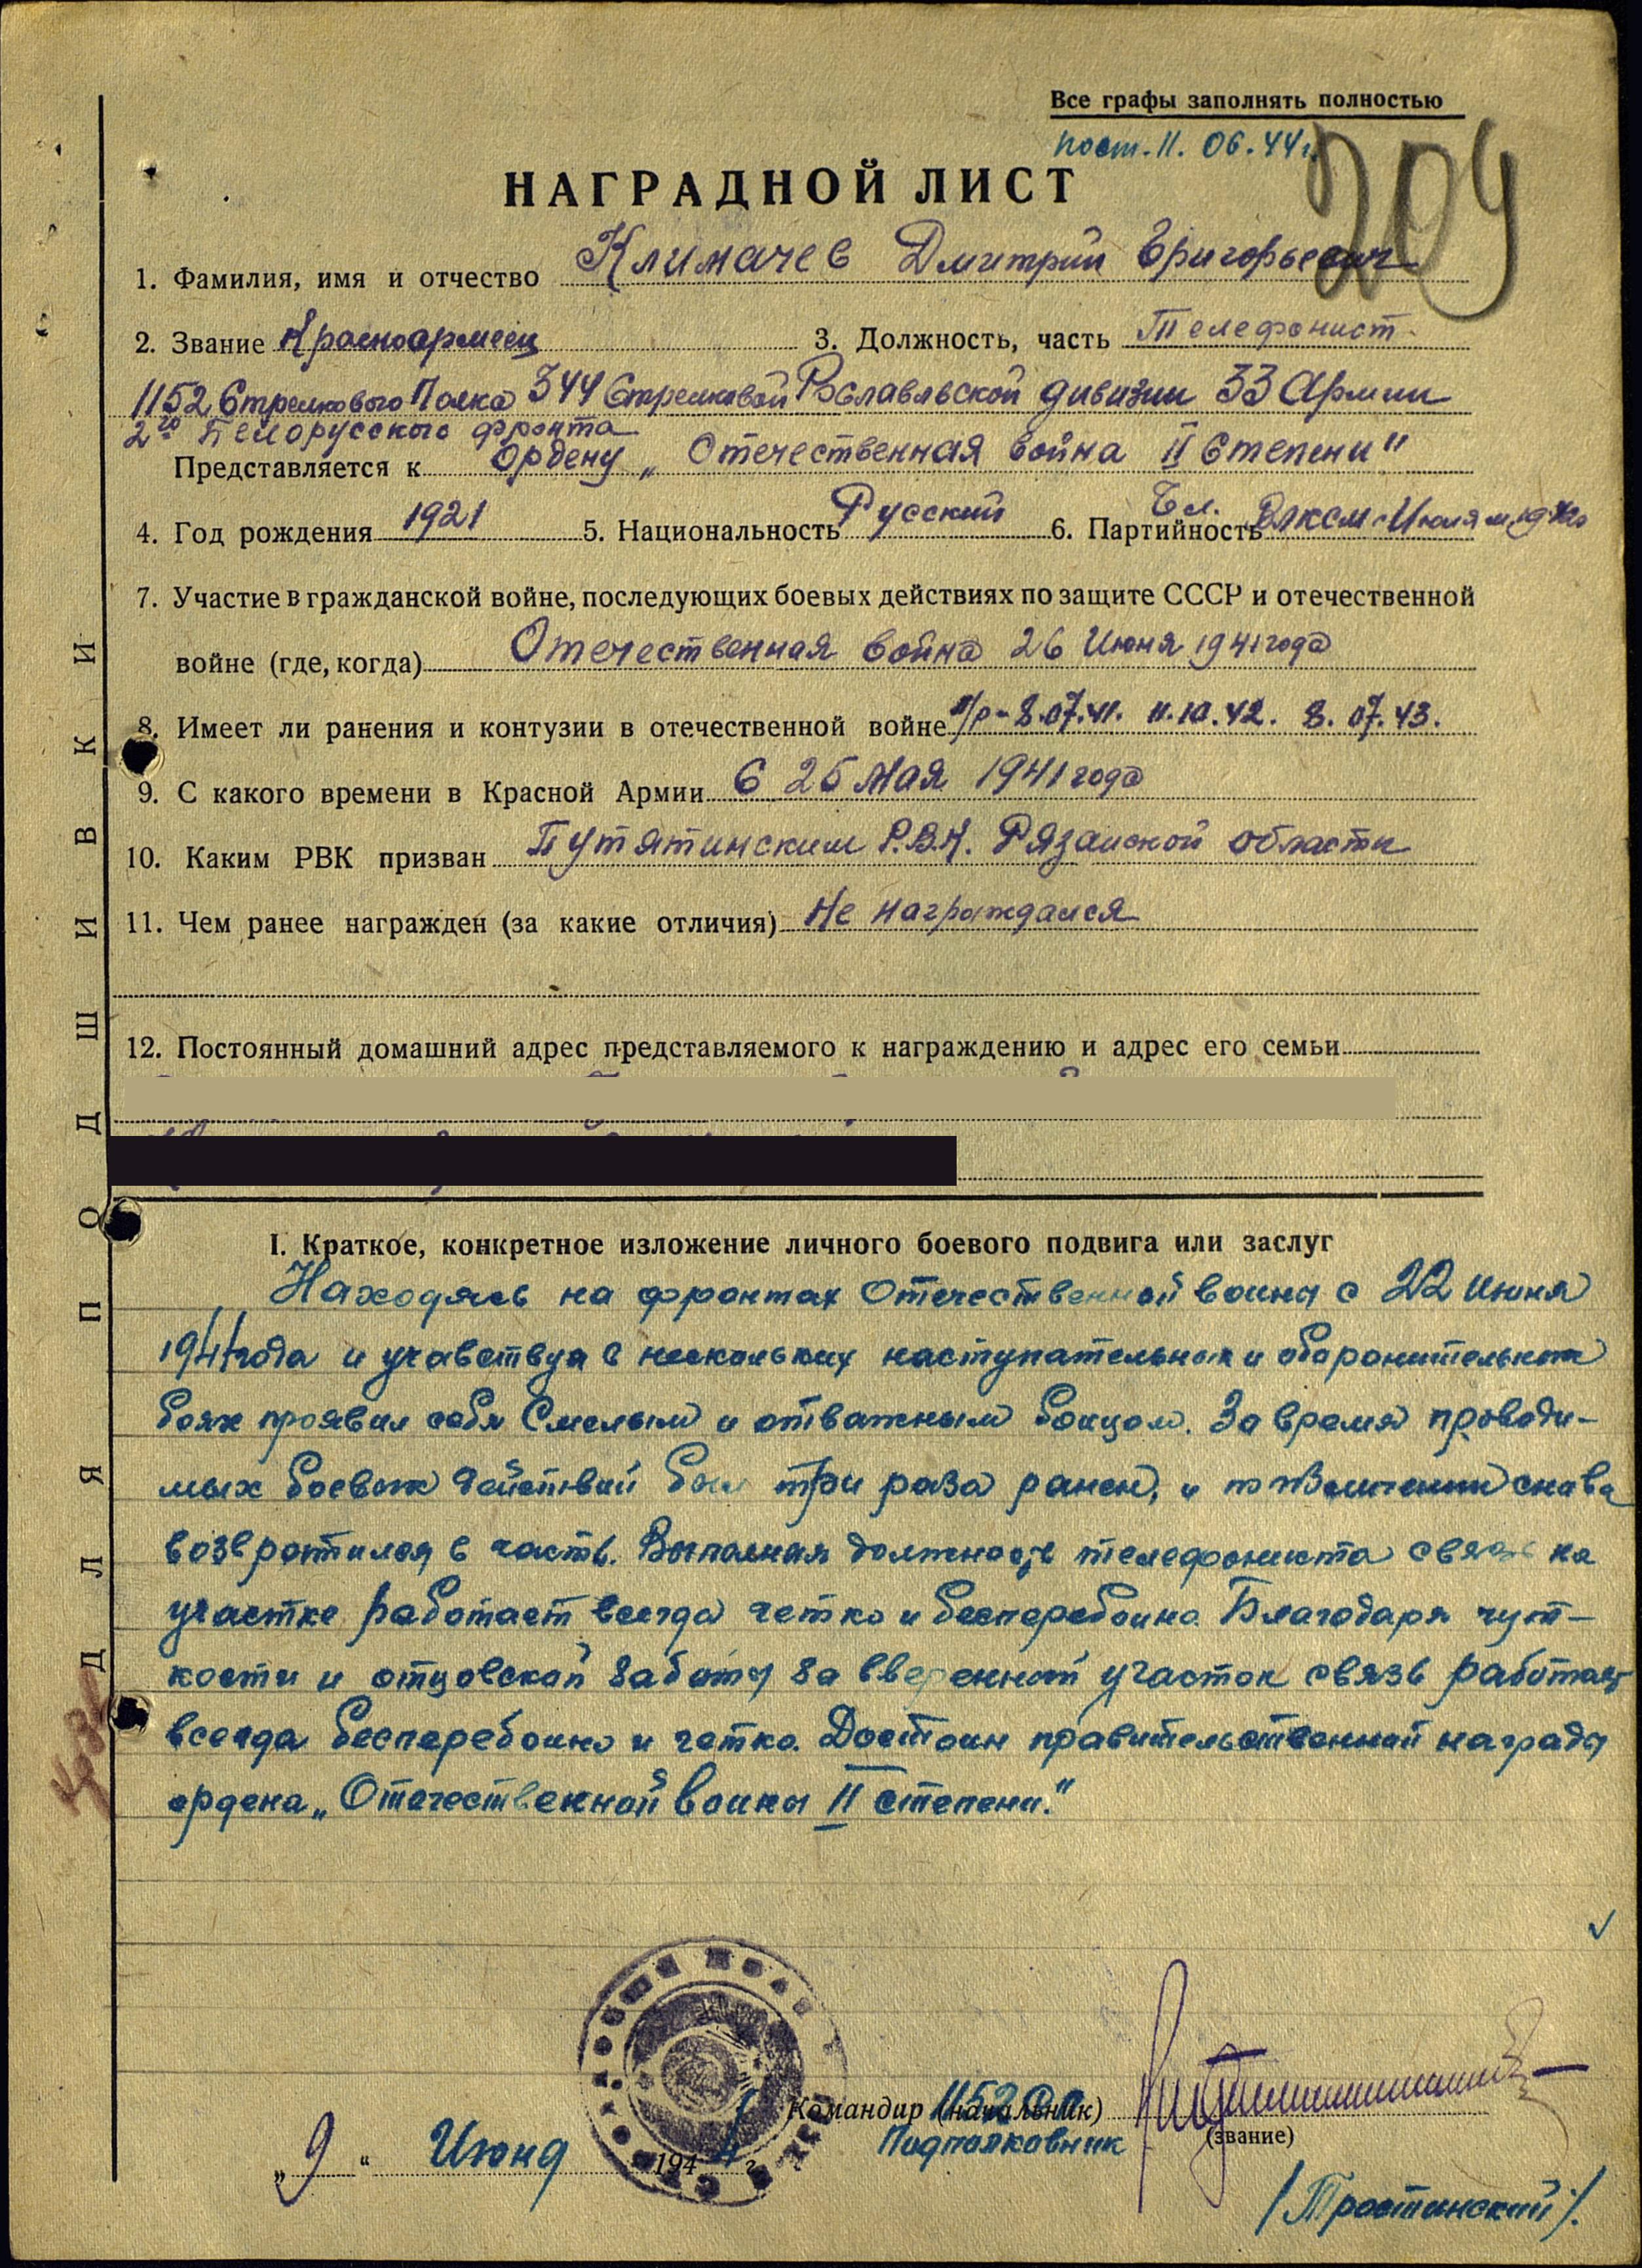 Все графы заполнять полностью
пост. 11. 06. 44 г.
209
НАГРАДНОЙ ЛИСТ
1. Фамилия, имя и отчество Климачев Дмитрий Григорьевич
2. Звание Красноармеец 3. Должность, часть Телефонист
1152 Стрелкового Полка 344 Стрелковой Рославльской дивизии 33 Армии
2го Белорусского фронта
Представляется к Ордену „Отечественная война II Степени"
4. Год рождения 1921 5. Национальность Русский 6. Партийность Чл. ВЛКСМ с Июля м.
7. Участие в гражданской войне, последующих боевых действиях по защите СССР и отечественной
войне (где, когда) Отечественная война 26 Июня 1941 года
8. Имеет ли ранения и контузии в отечественной войне 8.07.41. 11.10.42. 8.07.43.
9. С какого времени в Красной Армии С 25 Мая 1941 года
10. Каким РВК призван Путятинским Р.В.К. Рязанской области
11. Чем ранее награжден (за какие отличия) Не награждался
12. Постоянный домашний адрес представляемого к награждению и адрес его семьи
I. Краткое, конкретное изложение личного боевого подвига или заслуг
Находясь на фронтах Отечественной войны с 22 июня
1941 года и учавствуя в нескольких наступательных и оборонительных
боях проявил себя Смелым и отважным бойцом. За время проводи-
мых боевых действий был три раза ранен, и по снова
возвротился в часть. Выполняя должность телефониста связь на
участке работает всегда четко и бесперебойно. Благодаря чут-
кости и отцовской заботы за вверенный участок связь работает
всегда бесперебойно и четко. Достоин правительственной награды
ордена „Отечественной войны II степени."
„9" Июня 1944 г.
Командир (начальник) 1152 СП
Подполковник
(звание)
/Тростинский/.
ДЛЯ ПОДШИВКИ